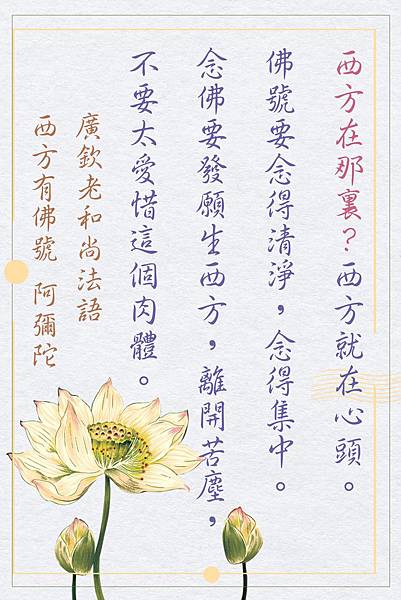 西方在那裏？西方就在心頭。
佛號要念得清淨，念得集中。
念佛要發願生西方，離開苦塵，
不要太愛惜這個肉體。
廣欽老和尚法語
西方有佛號 阿彌陀